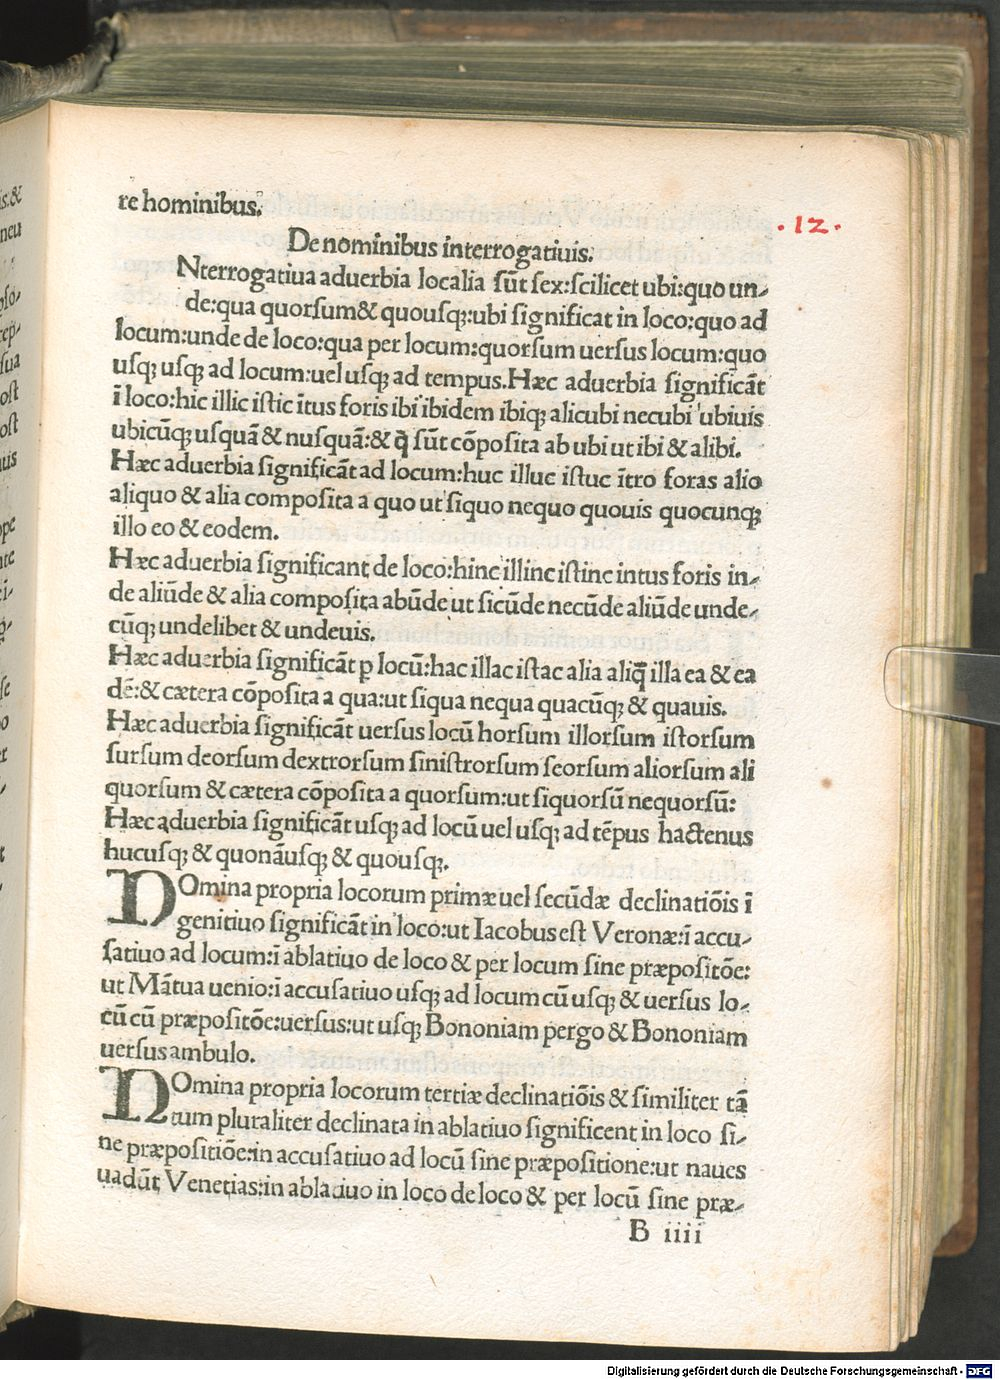 re hominibus.
.12.
De nominibus interrogatiuis.
Nterrogatiua aduerbia localia ſūt ſex:ſcilicet ubi:quo un-
de:qua quorſum& quouſq;:ubi ſignificat in loco:quo ad
locum:unde de loco:qua per locum:quorſum uerſus locum:quo
uſq; uſq; ad locum:uel uſq; ad tempus.Hæc aduerbia ſignificāt
ī loco:hic illic iſtic ītus foris ibi ibidem ibiq; alicubi necubi ubiuis
ubicūq; uſquā & nuſquā:& q̄ ſūt cōpoſita ab ubi ut ibi & alibi.
Hæc aduerbia ſignificāt ad locum:huc illuc iſtuc ītro foras alio
aliquo & alia compoſita a quo ut ſiquo nequo quouis quocunq;
illo eo & eodem.
Hæc aduerbia ſignificant de loco:hinc illinc iſtinc intus foris in-
de aliūde & alia compoſita abūde ut ſicūde necūde aliūde unde-
cūq; undelibet & undeuis.
Hæc aduerbia ſignificāt ꝑ locū:hac illac iſtac alia aliq̄ illa ea & ea
dē:& cætera cōpoſita a qua:ut ſiqua nequa quacūq; & quauis.
Hæc aduerbia ſignificāt uerſus locū horſum illorſum iſtorſum
ſurſum deorſum dextrorſum ſiniſtrorſum ſeorſum aliorſum ali
quorſum & cætera cōpoſita a quorſum:ut ſiquorſū nequorſū:
Hæc aduerbia ſignificāt uſq; ad locū uel uſq; ad tēpus hactenus
hucuſq; & quonāuſq; & quouſq;.
NOmina propria locorum primæ uel ſecūdæ declinatiōis ī
genitiuo ſignificāt in loco:ut Iacobus eſt Veronæ:ī accu-
ſatiuo ad locum:ī ablatiuo de loco & per locum ſine præpoſitōe:
ut Mātua uenio:ī accuſatiuo uſq; ad locum cū uſq; & uerſus lo-
cū cū præpoſitōe:uerſus:ut uſq; Bononiam pergo & Bononiam
uerſus ambulo.
NOmina propria locorum tertiæ declinatiōis & ſimiliter tā
tum pluraliter declinata in ablatiuo ſignificent in loco ſi-
ne præpoſitiōe:in accuſatiuo ad locū ſine præpoſitione:ut naues
uadūt Venetias:in ablatiuo in loco de loco & per locū ſine præ-
B iiii
Digitalisierung gefördert durch die Deutsche Forschungsgemeinschaft - DFG